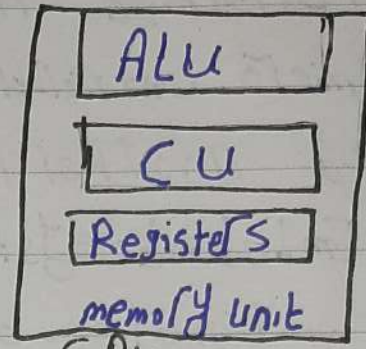 ALU
CU
Registers
memory unit